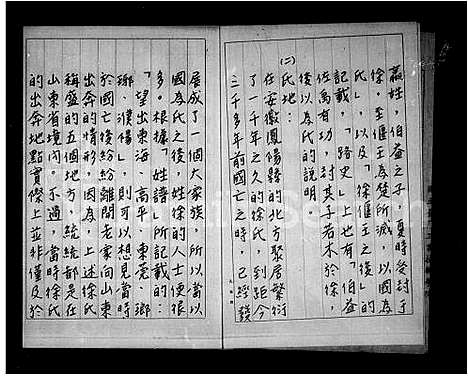 嬴姓，伯益之子，夏時受封于
徐。至偃王為楚所滅，以國為
氏」，以及「徐偃王之後」的
記載，「路史」上也有「伯益
佐禹有功，封其子若木於徐，
後以為氏的說明
(二)
氏地：
在安徽鳳陽縣的北方聚居繁衍
了一千年之久的徐氏，到距今
三千多年前國亡之時，已經發
展成了一個大家族，所以當以
國為氏之後，姓徐的人士便很
多。根據「姓譜」所記載的：
「望出東海、高平、東莞、瑯
琊、濮陽」，則可以想見當時
於國亡後紛紛離開老家向山東
出奔的情形，因為，上述徐氏
稱盛的五個地方，統統都是在
山東省境內。不過，當時徐氏
的出奔地點實際上並非僅及於